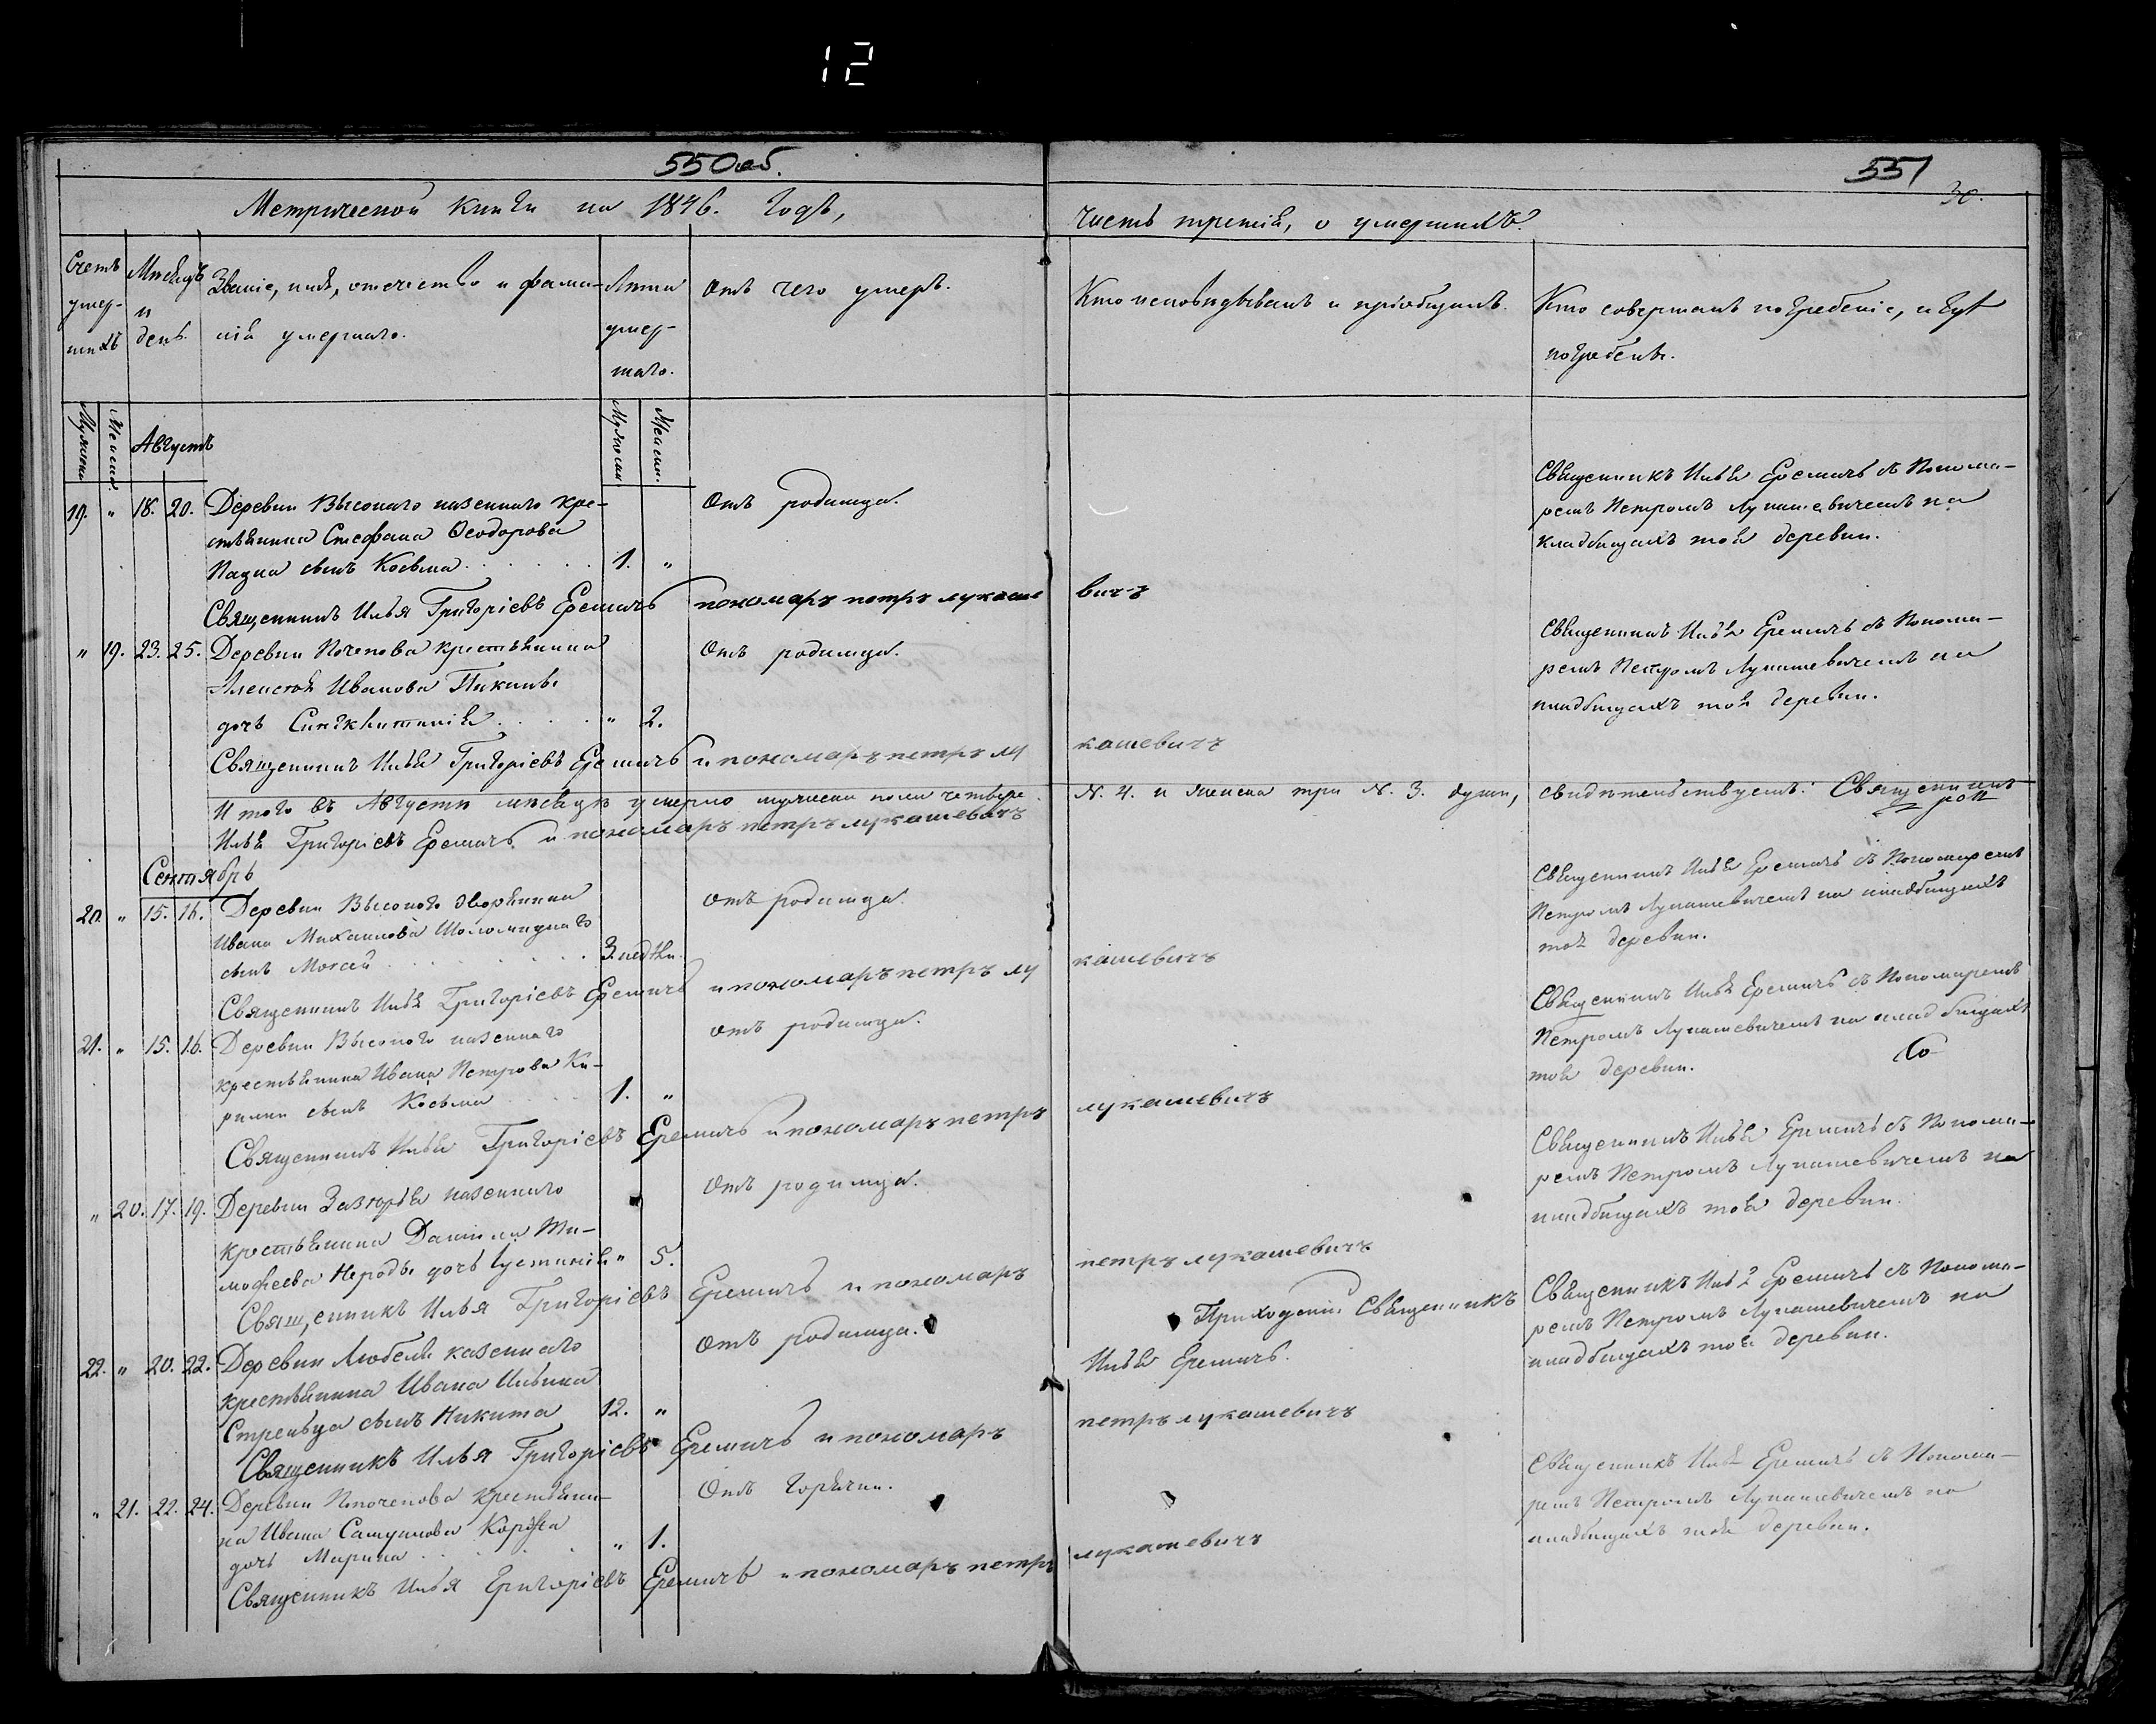 12
550об.
551
30.
Метрической книги на 1846. годъ,
часть третія, о умершихъ.
Счетъ умер-шихъ
Мѣсяцъ и день.
Званіе, имя, отечество и фами-
лія умершаго.
Лѣта умер-шаго.
Отъ чего умеръ.
Кто исповѣдывалъ и пріобщалъ.
Кто совершалъ погребеніе, и гдѣ
погребенъ.
Мужеска
Женска.
Августъ
Мужеска.
Женска.
19. " 18. 20. Деревни Высокаго казеннаго кре-
стьянина Стефана Ѳеодорова
сынъ Косьма 1. "
Отъ родимца.
Священникъ Илья Еремичъ съ Понома-
ремъ Петромъ Лукашевичемъ на
кладбищахъ той деревни.
Священникъ Илья Григоріевъ Еремичъ пономаръ петръ лукаше вичъ
" 19. 23. 25. Деревни Поченова крестьянина
Алексѣя Иванова
дочь Синклитикія " 2.
Отъ родимца.
Священникъ Илья Еремичъ съ Понома-
ремъ Петромъ Лукашевичемъ на
кладбищахъ той деревни.
Священникъ Илья Григоріевъ Еремичъ и пономаръ петръ лу кашевичъ
Итого въ Августѣ мѣсяцѣ умерло мужеска пола четыре N. 4. и женска три N. 3. души, свидѣтельствуемъ: Священникъ
Илья Григоріевъ Еремичъ и пономаръ петръ лукашевичъ
Сентябрь
20. " 15. 16. Деревни Высокого дворянина
Ивана Михаилова
сынъ Моѵсей 3. недѣли.
Отъ родимца.
Священникъ Илья Еремичъ съ Пономаремъ
Петромъ Лукашевичемъ на кладбищахъ
той деревни.
Священникъ Илья Григоріевъ Еремичъ и пономаръ петръ лу кашевичъ
21. " 15. 16. Деревни Высокого казеннаго
крестьянина Ивана Петрова Ки-
рилки сынъ Косьма 1. "
Отъ родимца.
Священникъ Илья Еремичъ съ Пономаремъ
Петромъ Лукашевичемъ на кладбищахъ
той деревни.
Священникъ Илья Григоріевъ Еремичъ и пономаръ петръ лукашевичъ
" 20. 17. 19. Деревни казеннаго
крестьянина Даніила Ти-
моѳеева Нероды дочь Іустинія " 5.
Отъ родимца.
Священникъ Илья Еремичъ съ Понома-
ремъ Петромъ Лукашевичемъ на
кладбищахъ той деревни.
Священникъ Илья Григоріевъ Еремичъ и пономаръ петръ лукашевичъ
22. " 20. 22. Деревни Любеля казеннаго
крестьянина Ивана Ильина
Стрельца сынъ Никита 12. "
Отъ родимца.
Приходскій Священникъ
Илья Еремичъ.
Священникъ Илья Еремичъ съ Понома-
ремъ Петромъ Лукашевичемъ на
кладбищахъ той деревни.
Священникъ Илья Григоріевъ Еремичъ и пономаръ петръ лукашевичъ
" 21. 22. 24. Деревни крестьяни-
на Ивана Самуилова
дочь Марина " 1.
Отъ горячки.
Священникъ Илья Еремичъ съ Понома-
ремъ Петромъ Лукашевичемъ на
кладбищахъ той деревни.
Священникъ Илья Григоріевъ Еремичъ и пономаръ петръ лукашевичъ